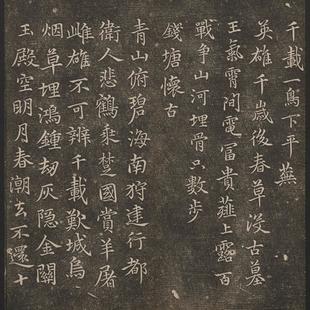 千載一鳥下平蕪
英雄千歲後春草没古墓
王氣霄間電冨貴薤上露百
戰争山河埋骨只數步
錢塘懷古
青山俯碧海南狩建行都
衛人悲鶴乘楚國賞羊屠
雌雄不可辨千載歎城烏
烟草埋鴻鍾刼灰隐金關
玉殿空明月春潮去不還十